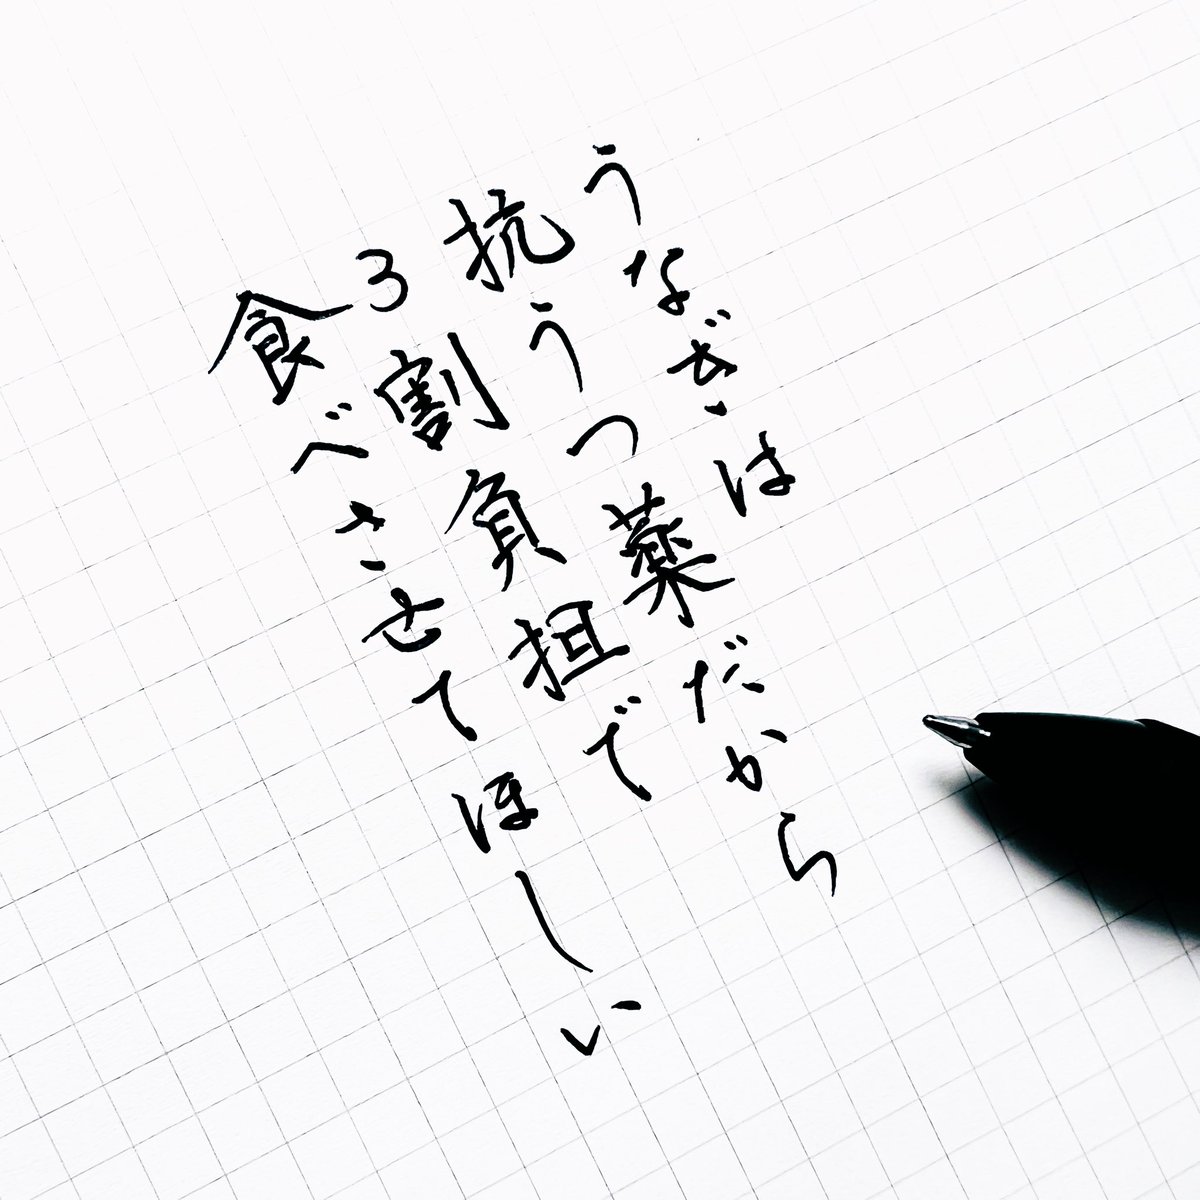 うなぎは
抗うつ薬だから
3割負担で
食べさせてほしい